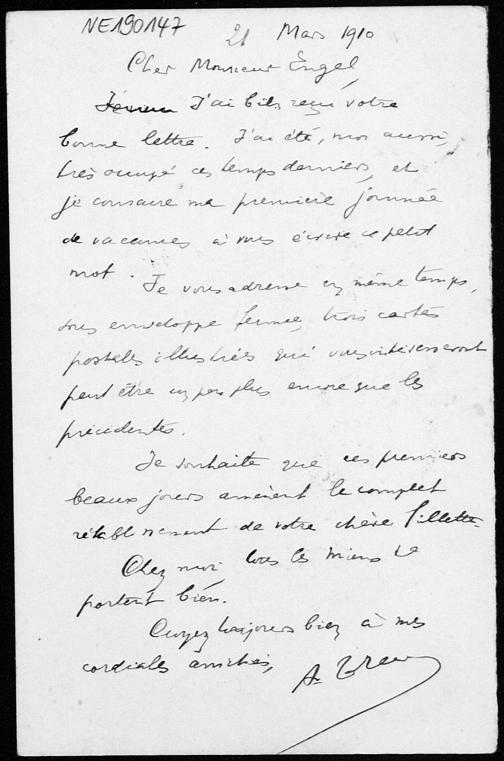 NE190147
21 Mars 1910
Cher Monsieur Engel,
J'ai bien reçu votre
bonne lettre. J'ai été, moi aussi,
très occupé ces temps derniers, et
je consacre ma première journée
de vacances à vous écrire ce petit
mot.
Je vous adresse en même temps,
sous enveloppe fermée, trois cartes
postales illustrées qui vous intéresseront
peut être un peu plus encore que les
précédentes.
Je souhaite que ces premiers
beaux jours amènent le complet
rétablissement de votre chère fillette.
Chez moi tous les miens se
portent bien.
Croyez toujours bien à mes
cordiales amitiés,
A.